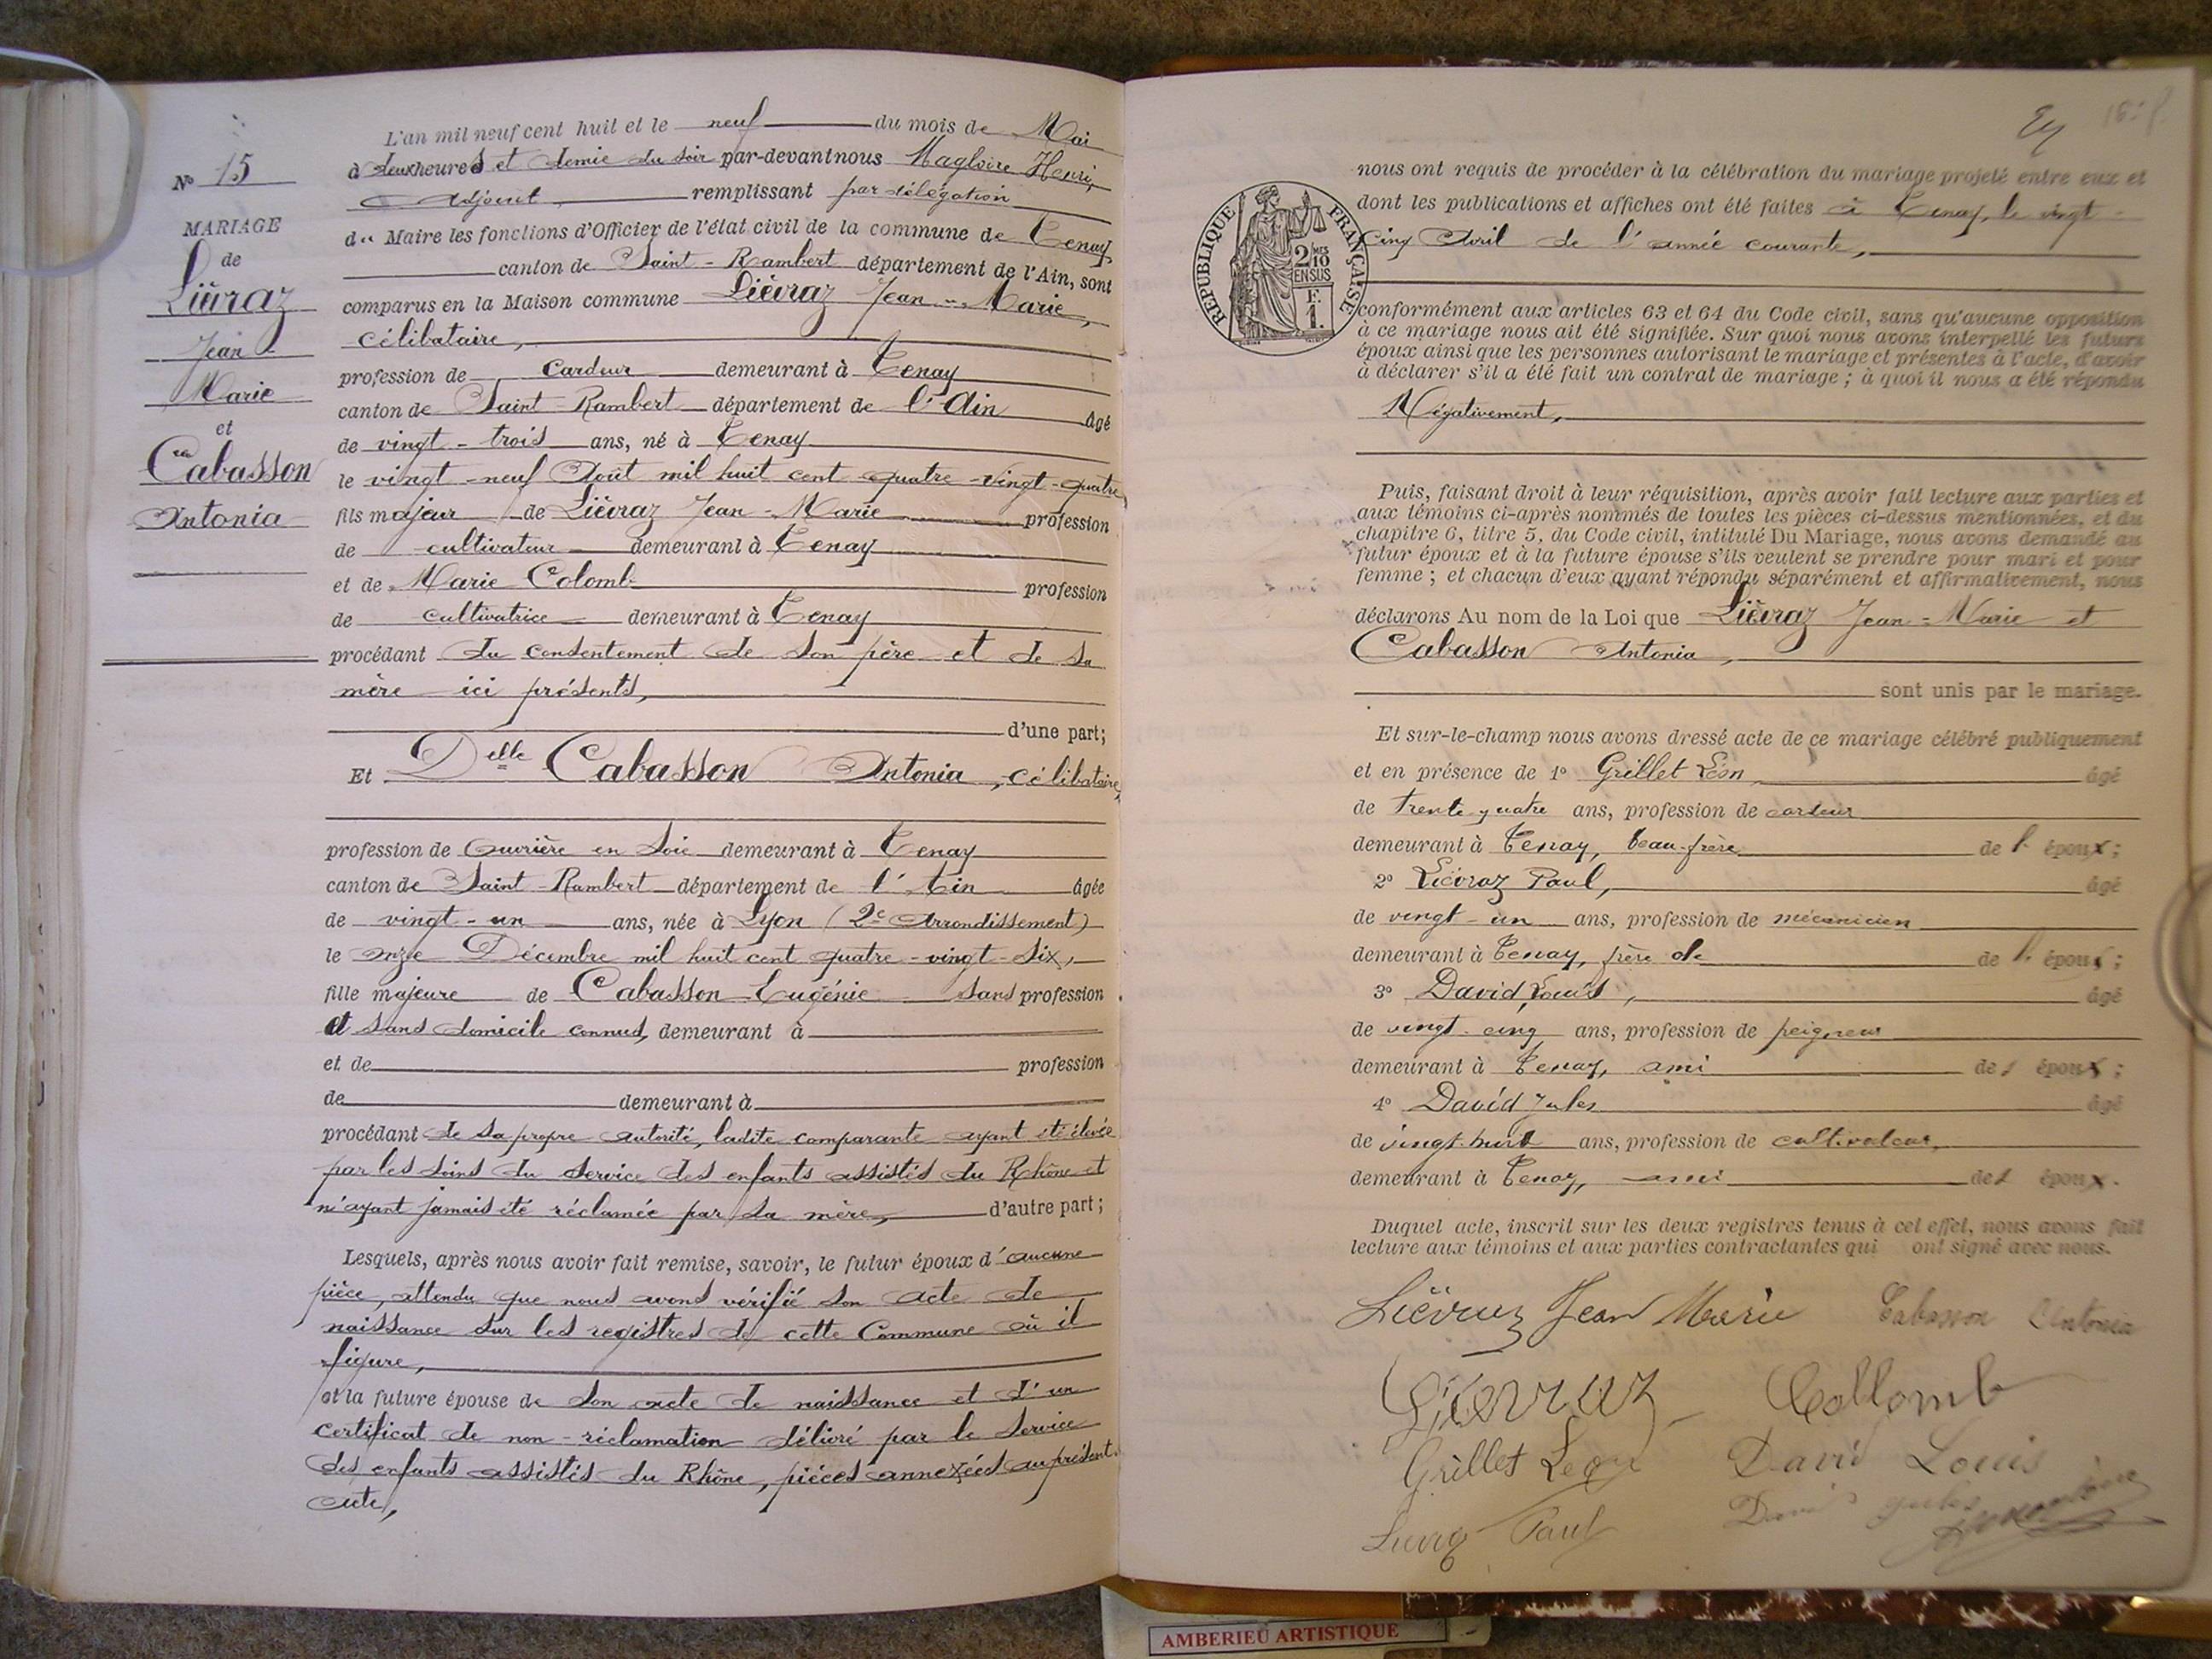 N° 15
MARIAGE
de
Liévraz
Jean-
Marie
et
Cabasson
Antonia
L'an mil neuf cent huit et le neuf du mois de Mai
à deux heures et demie du soir par-devant nous Magloire Henri,
Adjoint remplissant par délégation
du Maire les fonctions d'Officier de l'état civil de la commune de Tenay
canton de Saint-Rambert département de l'Ain, sont
comparus en la Maison commune Liévraz Jean-Marie,
célibataire,
profession de cardeur demeurant à Tenay
canton de Saint-Rambert département de l'Ain âgé
de vingt-trois ans, né à Tenay
le vingt-neuf Août mil huit cent quatre-vingt-quatre,
fils majeur de Liévraz Jean-Marie profession
de cultivateur demeurant à Tenay
et de Marie Colomb profession
de cultivatrice demeurant à Tenay
procédant du consentement de son père et de sa
mère ici présents,
d'une part;
Et Delle Cabasson Antonia, célibataire,
profession de Ouvrière en soie demeurant à Tenay
canton de Saint-Rambert département de l'Ain âgée
de vingt-un ans, née à Lyon (2e Arrondissement)
le onze Décembre mil huit cent quatre-vingt-six,
fille majeure de Cabasson Eugénie sans profession
et sans domicile connus, demeurant à
et de profession
de demeurant à
procédant de sa propre autorité, ladite comparante ayant été élevée
par les soins du service des enfants assistés du Rhône et
n'ayant jamais été réclamée par sa mère, d'autre part;
Lesquels, après nous avoir fait remise, savoir, le futur époux d'aucune
pièce, attendu que nous avons vérifié son acte de
naissance sur les registres de cette Commune où il
figure,
et la future épouse de son acte de naissance et d'un
certificat de non-réclamation délivré par le Service
des enfants assistés du Rhône, pièces annexées au présent
acte,
RÉPUBLIQUE FRANÇAISE
2/10 MES
EN SUS
F.
1.
nous ont requis de procéder à la célébration du mariage projeté entre eux et
dont les publications et affiches ont été faites à Tenay, le vingt-
cinq Avril de l'année courante,
conformément aux articles 63 et 64 du Code civil, sans qu'aucune opposition
à ce mariage nous ait été signifiée. Sur quoi nous avons interpellé les futurs
époux ainsi que les personnes autorisant le mariage et présentes à l'acte, d'avoir
à déclarer s'il a été fait un contrat de mariage ; à quoi il nous a été répondu
Négativement,
Puis, faisant droit à leur réquisition, après avoir fait lecture aux parties et
aux témoins ci-après nommés de toutes les pièces ci-dessus mentionnées, et du
chapitre 6, titre 5, du Code civil, intitulé Du Mariage, nous avons demandé au
futur époux et à la future épouse s'ils veulent se prendre pour mari et pour
femme ; et chacun d'eux ayant répondu séparément et affirmativement, nous
déclarons Au nom de la Loi que Liévraz Jean-Marie et
Cabasson Antonia,
sont unis par le mariage.
Et sur-le-champ nous avons dressé acte de ce mariage célébré publiquement
et en présence de 1° Grillet Léon, âgé
de trente quatre ans, profession de cardeur
demeurant à Tenay, beau-frère de l' époux;
2° Liévraz Paul, âgé
de vingt-un ans, profession de mécanicien
demeurant à Tenay, frère de de l' époux;
3° David Louis, âgé
de vingt-cinq ans, profession de peigneur
demeurant à Tenay, ami des époux;
4° David Jules âgé
de vingt-huit ans, profession de cultivateur,
demeurant à Tenay, ami des époux.
Duquel acte, inscrit sur les deux registres tenus à cet effet, nous avons fait
lecture aux témoins et aux parties contractantes qui ont signé avec nous.
Liévraz Jean Marie Cabasson Antonia
Liévraz Collomb
Grillet Léon David Louis
Paul David Jules
AMBERIEU ARTISTIQUE